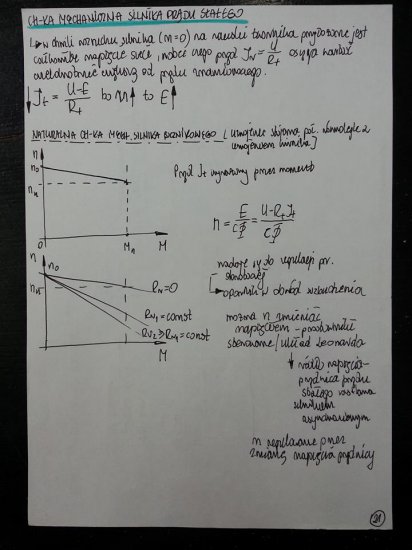 CH-KA MECHANICZNA SILNIKA PRĄDU STAŁEGO
↳ w chwili rozruchu silnika (n=0) na zaciski twornika przyłożone jest
całkowite napięcie sieci, wobec czego prąd I_N = U/R_t osiąga wartość
wielokrotnie większą od prądu znamionowego.
↓ I_t = U-E/R_t bo n↑ to E↑
NATURALNA CH-KA MECH. SILNIKA BOCZNIKOWEGO [uzwojenie stojana poł. równolegle z
uzwojeniem wirnika]
n
n₀
n_N
0
M_n
M
Prąd I_t wyrażony przez moment
n = E/cΦ = U-R_t I_t/cΦ
n
n₀
n_N
R_N=0
R_W1=const
R_W2≥R_W1=const
M
nadaje się do regulacji pr.
obrotowej
opornik w obwód wzbudzenia
można n zmieniać
napięciem - prostowniki
sterowane/układ Leonarda
↓
źródło napięcia-
prądnica prądu
stałego
silnikiem
asynchronicznym
n regulowane przez
zmianę napięcia prądnicy
21